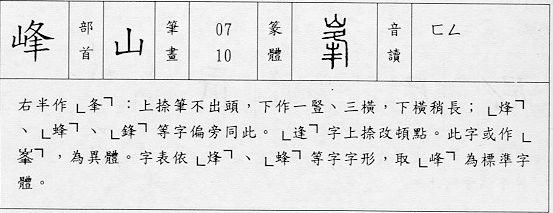 峰 部首 山 筆畫 07 10 篆體 峯 音讀 ㄈㄥ
右半作「夆」：上捺筆不出頭，下作一豎、三橫，下橫稍長；「烽」
、「蜂」、「鋒」等字偏旁同此。「逢」字上捺改頓點。此字或作「
峯」，為異體。字表依「烽」、「蜂」等字字形，取「峰」為標準字
體。